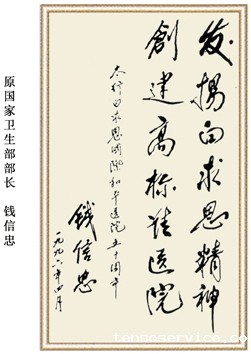 發揚白求恩精神
創建高标准医院
太行白求恩国际和平医院五十周年
钱信忠
一九九六年四月
原国家卫生部部长 钱信忠
www.tensoservice.com